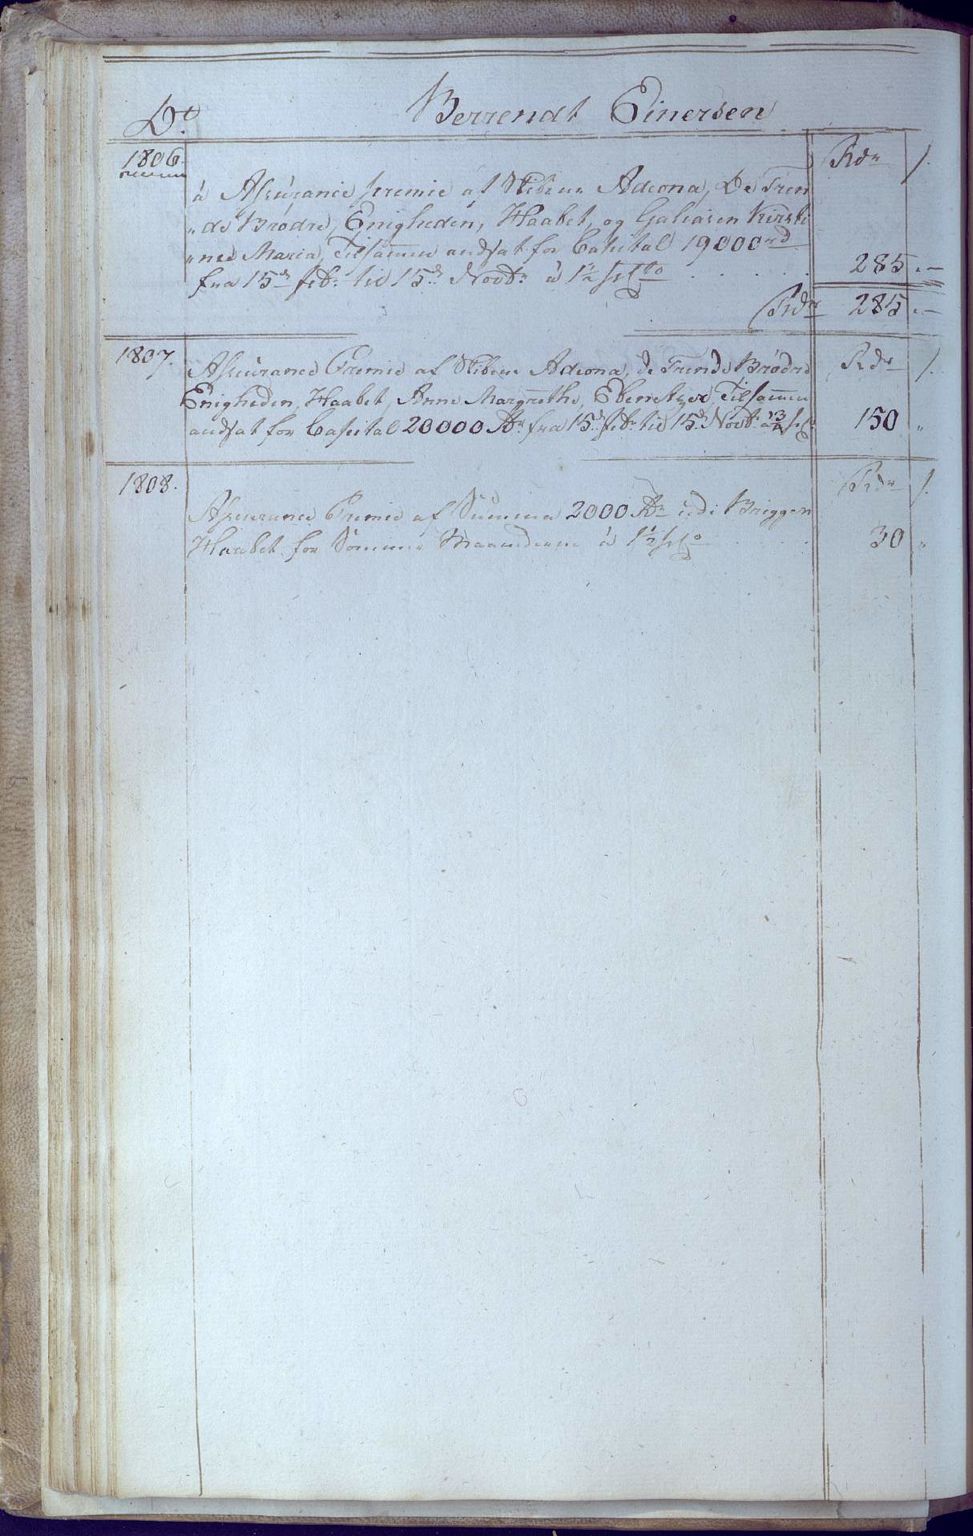 Do. Berrendt Einersen
1806. Rdr /.
à Assurance premie af Skibene Adeona, De Tren
"de Brødre, Enigheden, Haabet, og Galiasen Kirsti
"ne Maria, Tilsamen andsat for Capital 19000 rd
fra 15de feb: til 15de Novbr: à 1½ pCto 285 . –
Rdr 285 . –
1807. Assurance Premie af Skibene Adeona, de Trende Brødre Rdr /.
Enigheden, Haabet, Anne Margrethe, Ebenetzer Tilsamen
andsat for Capital 20000 Rdr fra 15de feb: til 15de Novb: 150 "
1808. Rdr /.
Assurance Premie af Summa 2000 Rdr i di Briggen
Haabet for Sommer Maanderne à 1½ pCto 30 "